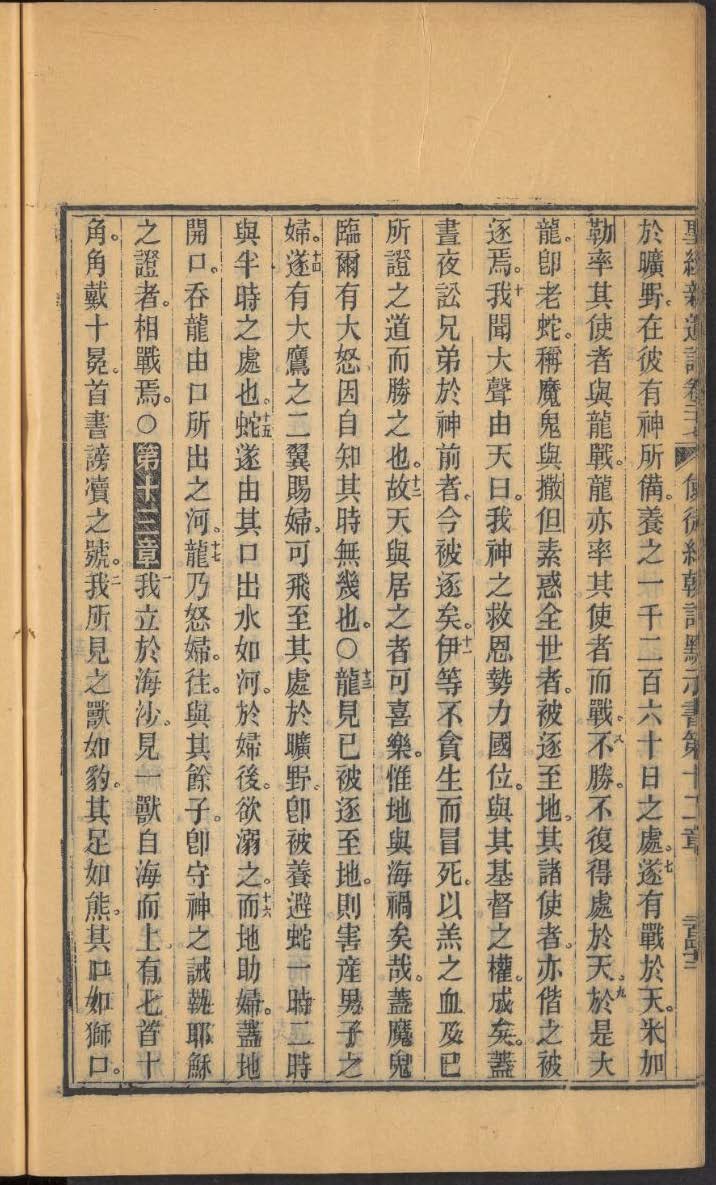 聖經新遺詔卷 使徒經朝記默示書第十二章
於曠野。在彼有神所備。養之一千二百六十日之處。七遂有戰於天。米加
勒率其使者與龍戰。龍亦率其使者而戰。八不勝。不復得處於天。九於是大
龍。卽老蛇。稱魔鬼與撒但素惑全世者。被逐至地。其諸使者。亦偕之被
逐焉。十我聞大聲由天曰。我神之救恩勢力國位。與其基督之權。成矣。蓋
晝夜訟兄弟於神前者。今被逐矣。十一伊等不貪生而冒死。以羔之血及己
所證之道而勝之也。十二故天與居之者可喜樂。惟地與海禍矣哉。蓋魔鬼
臨爾有大怒因自知其時無幾也。〇十三龍見已被逐至地。則害產男子之
婦。十四遂有大鷹之二翼賜婦。可飛至其處於曠野。卽被養避蛇一時二時
與半時之處也。十五蛇遂由其口出水如河。於婦後。欲溺之。十六而地助婦。蓋地
開口。吞龍由口所出之河。十七龍乃怒婦。往。與其餘子。卽守神之誡執耶穌
之證者。相戰焉。〇第十三章一我立於海沙。見一獸自海而上。有七首十
角。角戴十冕。首書謗瀆之號。二我所見之獸如豹。其足如熊。其口如獅口。